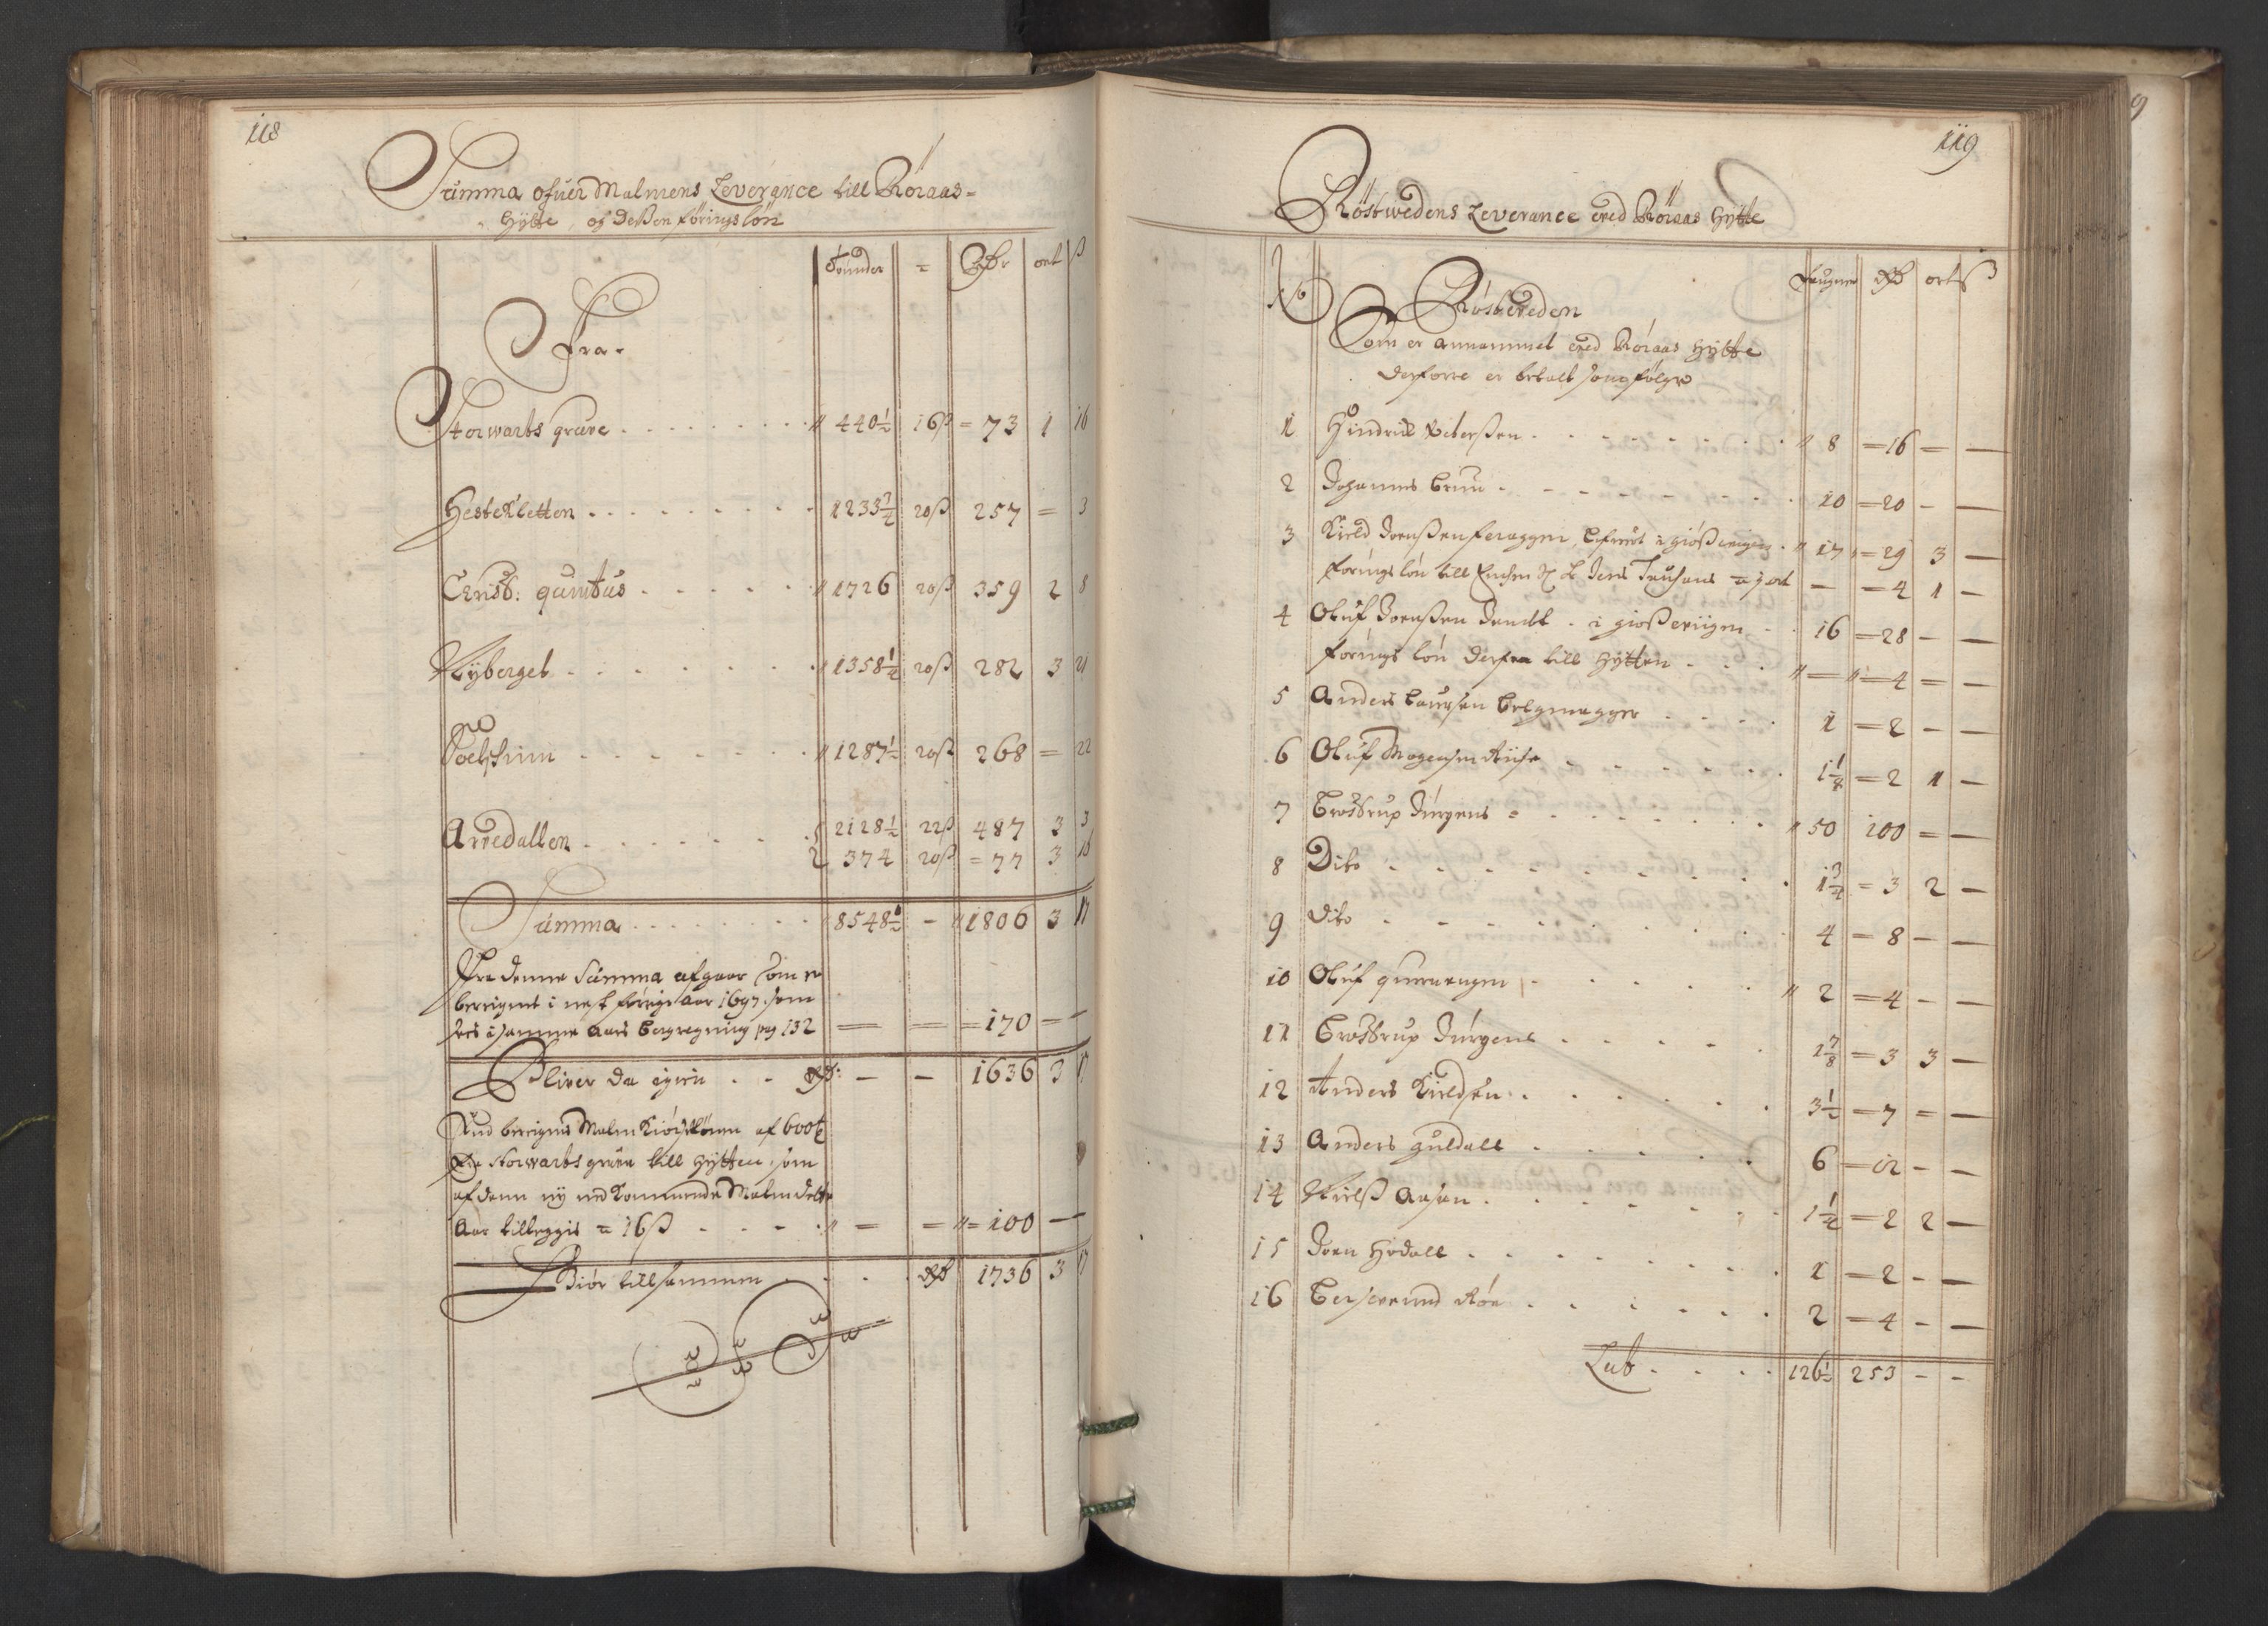 118
Summa ofuer Malmens Leverance till Röraas-
Hÿtte, og deßen föringslön
Tönder = Rdr ort ß
Fra.
Storwarts grůve " 440½ 16ß = 73 1 16
Hestekletten 1233¾ 20ß 257 = 3
Christ: quintus " 1726 20ß 359 2 8
Nÿberget " 1358¼ 20ß 282 3 21
" 1287½ 20ß 268 = 22
Arvedallen 2128½ 22ß 487 3 3
374 20ß = 77 3 16
Summa " 8548½ - " 1806 3 17
Fra denne Summa afgaar som er
beregnet i nest forige aar 1697. som
sees i samme aars bergregning pag 132 — — = 170 — —
Bliver da igien Rdr: — — 1636 3 17
Nud beregnes Malm Kiörslönen af 600 t
fra Storwarts grůve till Hÿtten, som
af denn nÿ ned kommende Malm dette
Aar tilleggis a 16ß " = = " = 100 —
Giör tillsammen Rdr 1736 3 17
119
Röstwedens Leverance ved Röraas Hÿtte
No Faugner Rdr ort ß
Röstveden
Som er annammet ved Röraas Hÿtte
derforre er betalt som fölger
1 Hindrich Peterßen " 8 = 16 = —
2 Johannes Brun 10 = 20 - —
3 Kield Joenßen " 17 " = 29 3 —
föringslön till — = 4 1 —
4 Oluf Joenßen 16 = 28 - —
förings lön derfra till Hÿtten " — " = 4 = —
5 Anders Laursen 1 = 2 - —
6 Oluf Mogensen 1⅛ = 2 1 —
7 Brostrup Jürgens " 50 100 = —
8 Dito 1¾ = 3 2 —
9 Dito 4 = 8 - —
10 Oluf " 2 = 4 - —
11 Brostrup Jürgens 1⅞ = 3 3 —
12 Anders Kieldsen 3½ = 7 = —
13 Anders guldall 6 = 12 - —
14 Nielß Aasen 1¼ = 2 2 —
15 Joen Hodall 1 = 2 - —
16 2 = 4 - —
Lat 126½ 253 - -